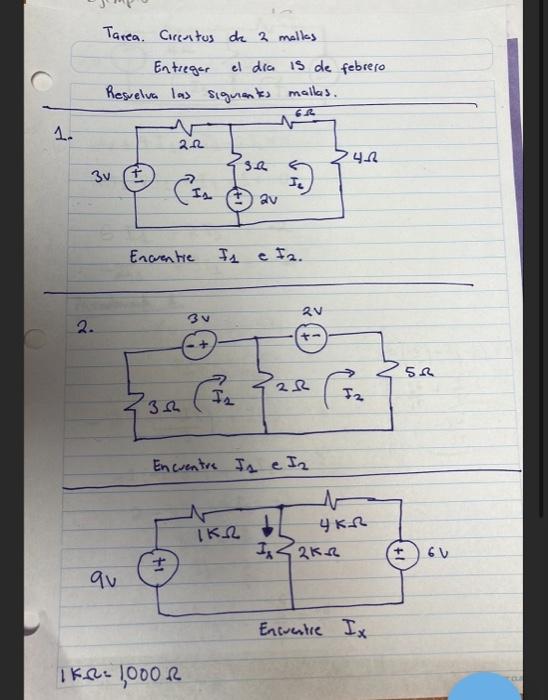 Tarea. Circuitos de 2 mallas
Entregar el día 15 de febrero
Resuelva las siguientes mallas.
1.
6Ω
2Ω
3Ω
4Ω
3V
I1
I2
2V
Encuentre I1 e I2.
2.
3V
2V
3Ω
I1
2Ω
I2
5Ω
Encuentre I1 e I2
1KΩ
4KΩ
Ix
2KΩ
9V
6V
Encuentre Ix
1KΩ = 1,000 Ω